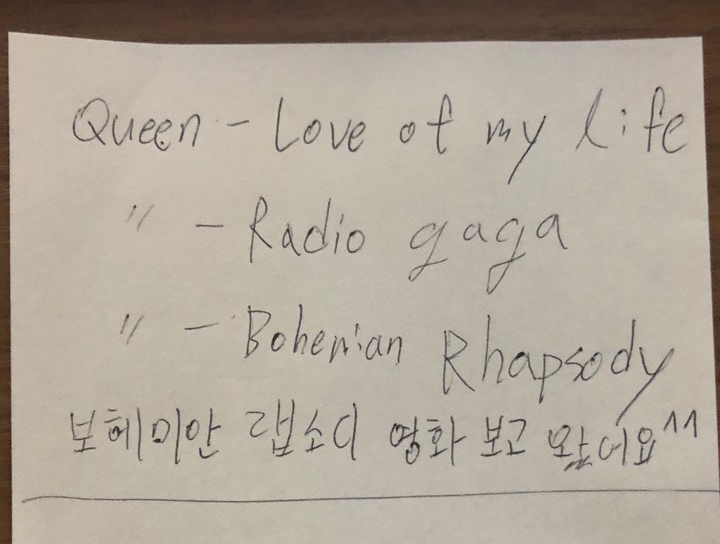 Queen - Love of my life
〃 - Radio gaga
〃 - Bohemian Rhapsody
보헤미안 랩소디 영화 보고 왔어요^^